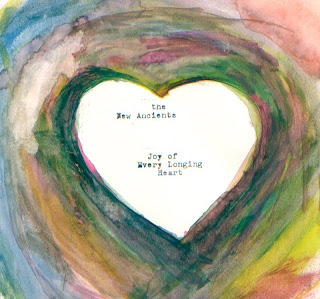 the
New Ancients
Joy of
Every Longing
Heart